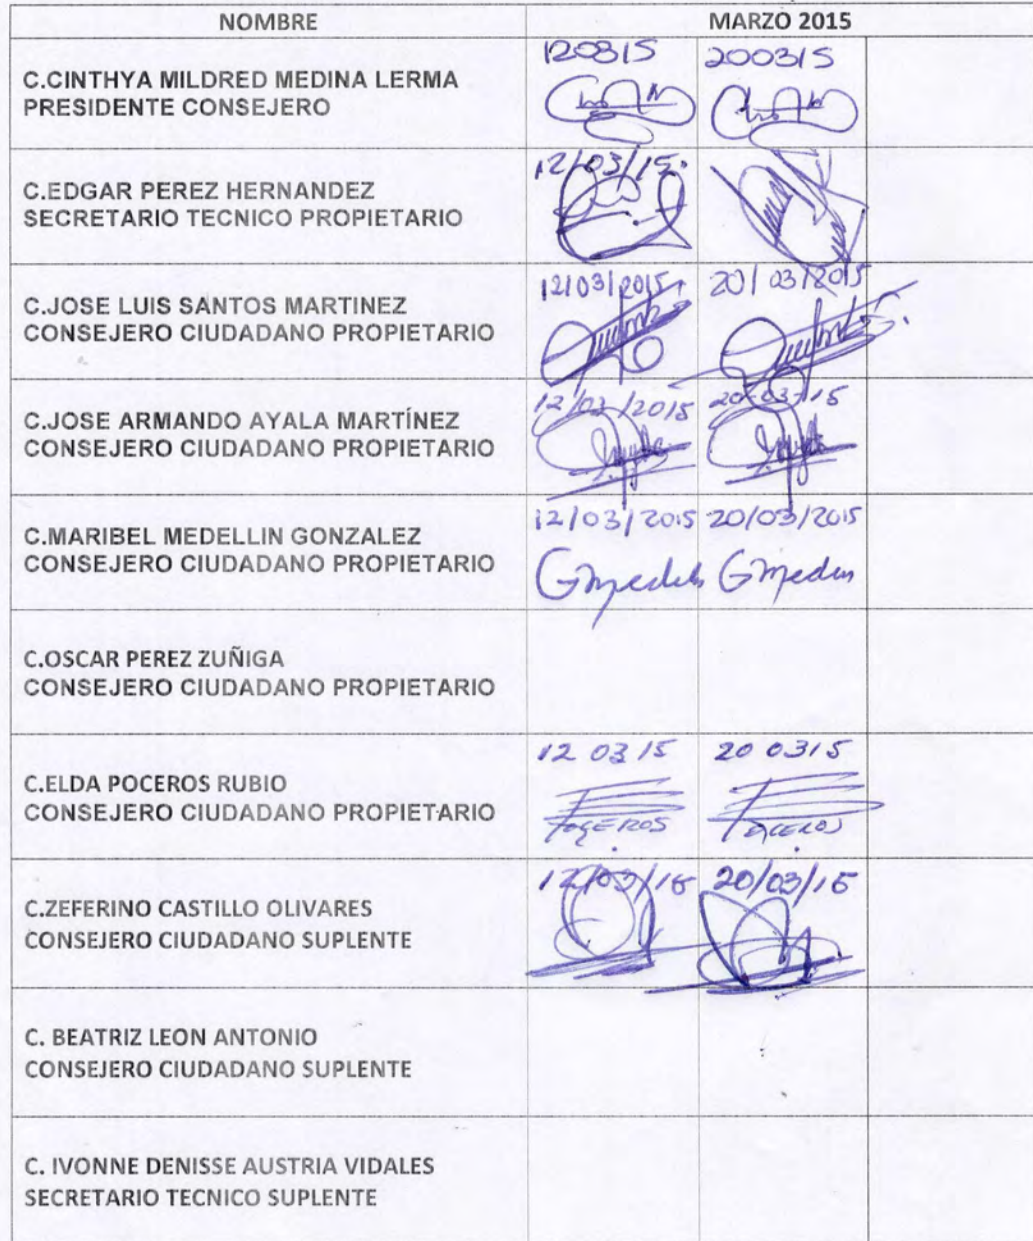 NOMBRE MARZO 2015
120315 200315
C.CINTHYA MILDRED MEDINA LERMA
PRESIDENTE CONSEJERO
12/03/15.
C.EDGAR PEREZ HERNANDEZ
SECRETARIO TECNICO PROPIETARIO
12/03/2015 20/03/2015
C.JOSE LUIS SANTOS MARTINEZ
CONSEJERO CIUDADANO PROPIETARIO
12/03/2015 20-03-15
C.JOSE ARMANDO AYALA MARTÍNEZ
CONSEJERO CIUDADANO PROPIETARIO
12/03/2015 20/03/2015
C.MARIBEL MEDELLIN GONZALEZ
CONSEJERO CIUDADANO PROPIETARIO
C.OSCAR PEREZ ZUÑIGA
CONSEJERO CIUDADANO PROPIETARIO
12 03 15 20 0315
C.ELDA POCEROS RUBIO
CONSEJERO CIUDADANO PROPIETARIO
POCEROS POCEROS
12/03/15 20/03/15
C.ZEFERINO CASTILLO OLIVARES
CONSEJERO CIUDADANO SUPLENTE
C. BEATRIZ LEON ANTONIO
CONSEJERO CIUDADANO SUPLENTE
C. IVONNE DENISSE AUSTRIA VIDALES
SECRETARIO TECNICO SUPLENTE